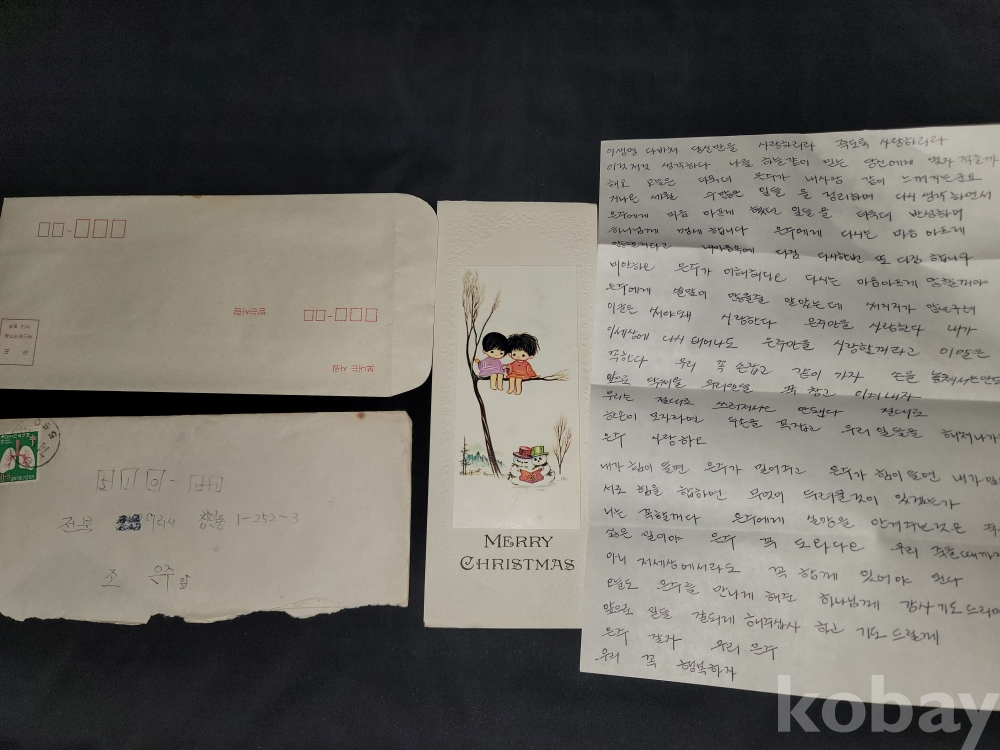 받는사람
보내는 사람
510-
전북 이리시 창인동 1-252-3
조 은주 앞
MERRY
CHRISTMAS
이생명 다바쳐 당신만을 사랑하리라 죽도록 사랑하리라
이것저것 생각하다 나를 하늘같이 믿는 당신에게
해도 은주가 내사람 같이 느껴지는군요
지나온 세월 수많은 일들을 정리하며 다시 생각하면서
은주에게 마음 아프게 했던 일들을 반성하며
하나님께 맹세합니다 은주에게 다시는 마음 아프게
내마음속에 다짐 다시한번 또 다짐 합니다
미안하오 은주가 이해해다오 다시는 마음아프게 안할꺼야
은주에게 할말이 많을줄 알았는데
이글은 써야돼 사랑한다 은주만을 사랑한다 내가
이세상에 다시 태어나도 은주만을 사랑할꺼라고 이말은
꼭한다 우리 꼭 손잡고 같이 가자 손을
앞으로 닥쳐올 우리만을 꼭 참고 이겨내자
우리는 절대로 쓰러져서는 안된다 절대로
한손이 모자라면 두손을 꼭잡고 우리 일들을 해쳐나가
은주 사랑하오
내가 힘이 들면 은주가 밀어주고 은주가 힘이들면 내가
서로 힘을 합하면 무엇이 두려울것이 있겠는가
나는 꼭할꺼다 은주에게 실망을 안겨주는것은
싫은 일이야 은주 꼭 도와다오 우리 죽을때까지
아니 저세상에서라도 꼭 함께 있어야 된다
오늘도 은주를 만나게 해준 하나님께 감사기도드리며
앞으로 일들 잘되게 해주십사 하고 기도 드릴께
은주 잘자 우리 은주
우리 꼭 행복하자
kobay